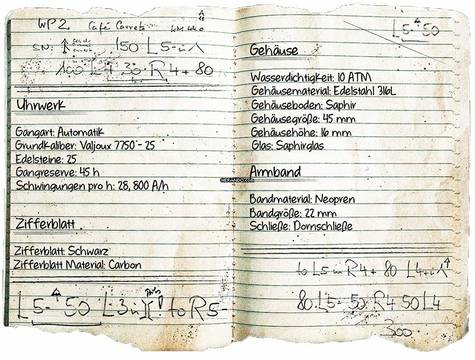 WP2 Café
150 L5
30 R4 + 80
Uhrwerk
Gangart: Automatik
Grundkaliber: Valjoux 7750 - 25
Edelsteine: 25
Gangreserve: 45 h
Schwingungen pro h: 28, 800 A/h
Zifferblatt
Zifferblatt: Schwarz
Zifferblatt Material: Carbon
L5-50 L3 to R5-
L5-50
Gehäuse
Wasserdichtigkeit: 10 ATM
Gehäusematerial: Edelstahl 316L
Gehäuseboden: Saphir
Gehäusegröße: 45 mm
Gehäusehöhe: 16 mm
Glas: Saphirglas
Armband
Bandmaterial: Neopren
Bandgröße: 22 mm
Schließe: Dornschließe
to L5 R4 + 80 L4
80 L5- 50 R4 50 L4
300